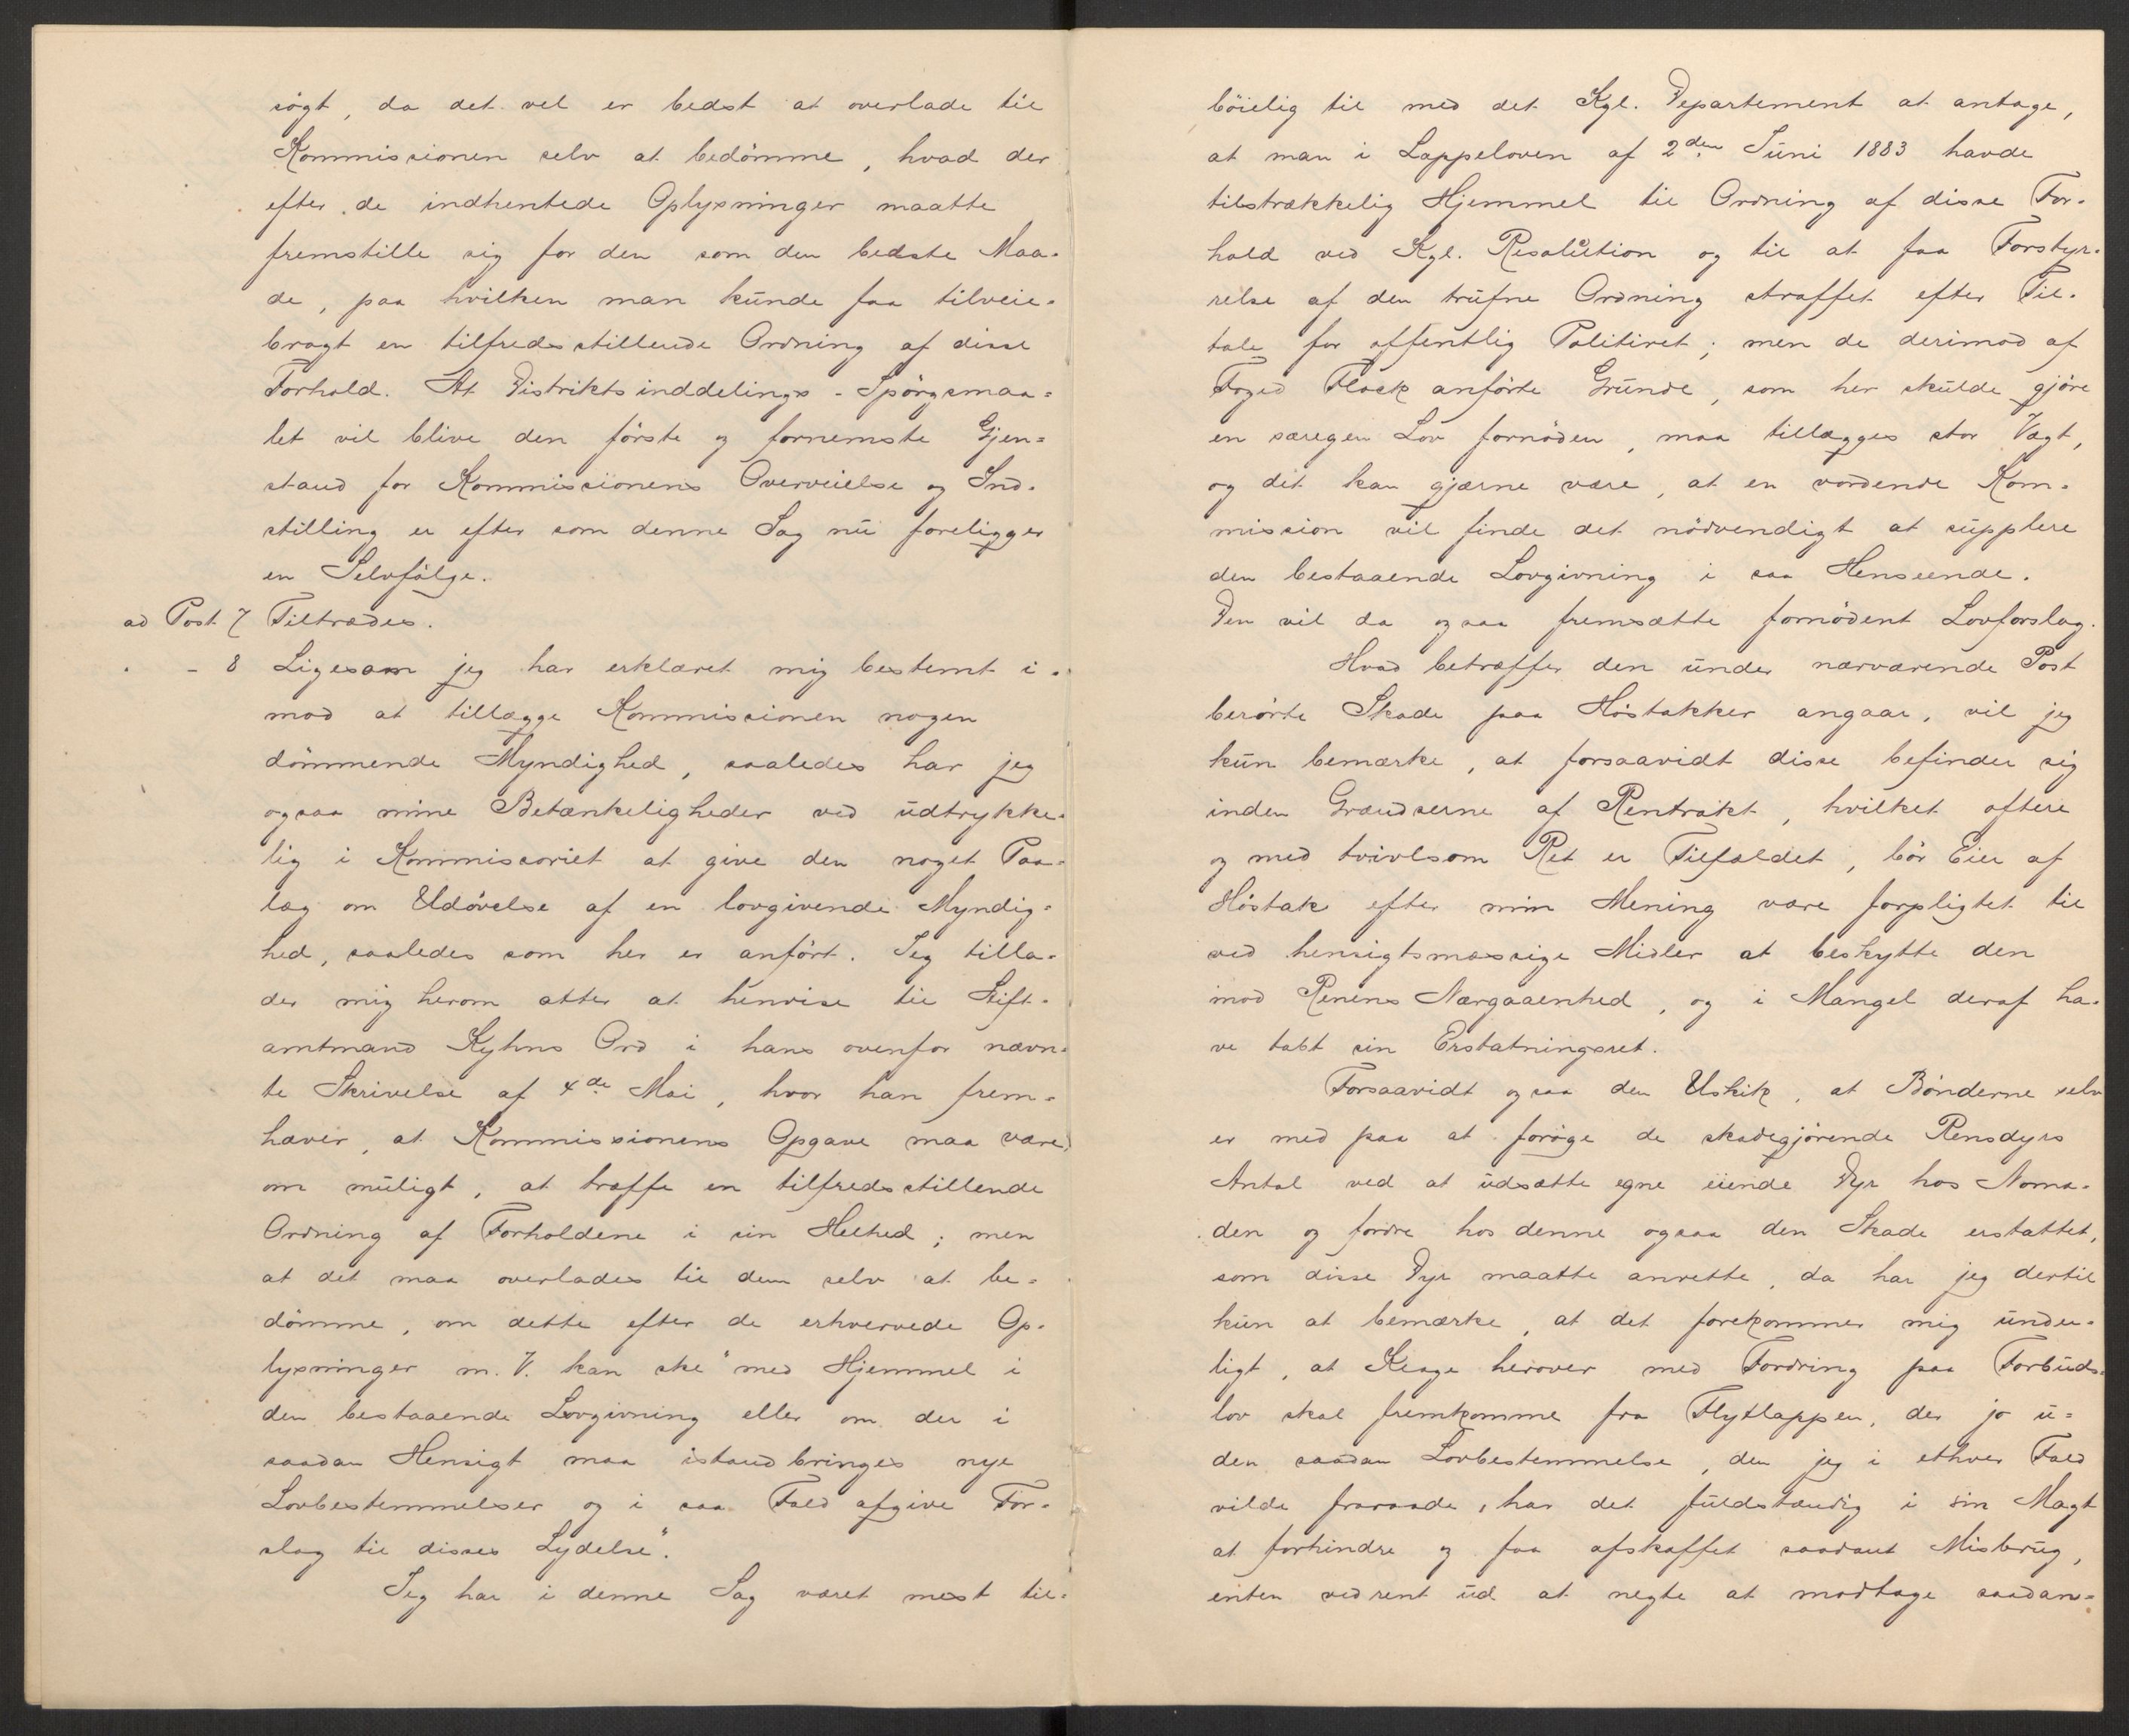 søgt, da det vel er bedst at overlade til
Kommissionen selv at bedømme, hvad der
efter de indhentede Oplysninger maatte
fremstille sig for den som den bedste Maa-
de, paa hvilken man kunde faa tilveie-
bragt en tilfredsstillende Ordning af disse
Forhold. At Distriktsinddelings-Spørgsmaa-
let vil blive den første og fornemste Gjen-
stand for Kommissionens Overveielse og Ind-
stilling er efter som denne Sag nu foreligger
en Selvfølge.
ad Post 7 Tiltrædes.
" - 8 Ligesom jeg har erklæret mig bestemt i-
mod at tillægge Kommissionen nogen
dømmende Myndighed, saaledes har jeg
ogsaa mine Betænkeligheder ved udtrykke-
lig i Kommissoriet at give den noget Paa-
læg om Udøvelse af en lovgivende Myndig-
hed, saaledes som her er anført. Jeg tilla-
der mig herom atter at henvise til Stift-
amtmand Kyhns Ord i hans ovenfor nævn-
te Skrivelse af 4de Mai, hvor han frem-
hæver, at Kommissionens Opgave maa være,
om muligt, at træffe en tilfredsstillende
Ordning af Forholdene i sin Helhed; men
at det maa overlades til dem selv at be-
dømme, om dette efter de erhvervede Op-
lysninger m. V. kan ske "med Hjemmel i
den bestaaende Lovgivning eller om der i
saadan Hensigt maa istandbringes nye
Lovbestemmelser og i saa Fald afgive For-
slag til disses Lydelse".
Jeg har i denne Sag været mest til-
bøielig til med det Kgl. Departement at antage,
at man i Lappeloven af 2den Juni 1883 havde
tilstrækkelig Hjemmel til Ordning af disse For-
hold ved Kgl. Resolution og til at faa Forstyr-
relse af den trufne Ordning straffet efter Til-
tale for offentlig Politiret; men de derimod af
Foged Flock anførte Grunde, som her skulde gjøre
en særegen Lov fornøden, maa tillægges stor Vægt,
og det kan gjærne være, at en vordende Kom-
mission vil finde det nødvendigt at supplere
den bestaaende Lovgivning i saa Henseende.
Den vil da ogsaa fremsætte fornødent Lovforslag.
Hvad betræffer den under nærværende Post
berørte Skade paa Høstakker angaar, vil jeg
kun bemærke, at forsaavidt disse befinder sig
inden Grændserne af Rentrakt, hvilket oftere
og med tvivlsom Ret er Tilfældet, bør Eier af
Høstak efter min Mening være forpligtet til
ved hensigtsmæssige Midler at beskytte den
imod Renens Nærgaaenhed, og i Mangel deraf ha-
ve tabt sin Erstatningsret.
Forsaavidt ogsaa den Uskik, at Bønderne selv
er med paa at forøge de skadegjørende Rensdyrs
Antal ved at udsætte egne eiende Dyr hos Noma-
den og fordre hos denne ogsaa den Skade erstattet,
som disse Dyr maatte anrette, da har jeg dertil
kun at bemærke, at det forekommer mig under-
ligt, at Klage herover med Fordring paa Forbuds-
lov skal fremkomme fra Flytlappen, der jo u-
den saadan Lovbestemmelse, den jeg i ethver Fald
vilde fraraade, har det fuldstændig i sin Magt
at forhindre og faa afskaffet saadant Misbrug,
enten ved rent ud at negte at modtage saadan-